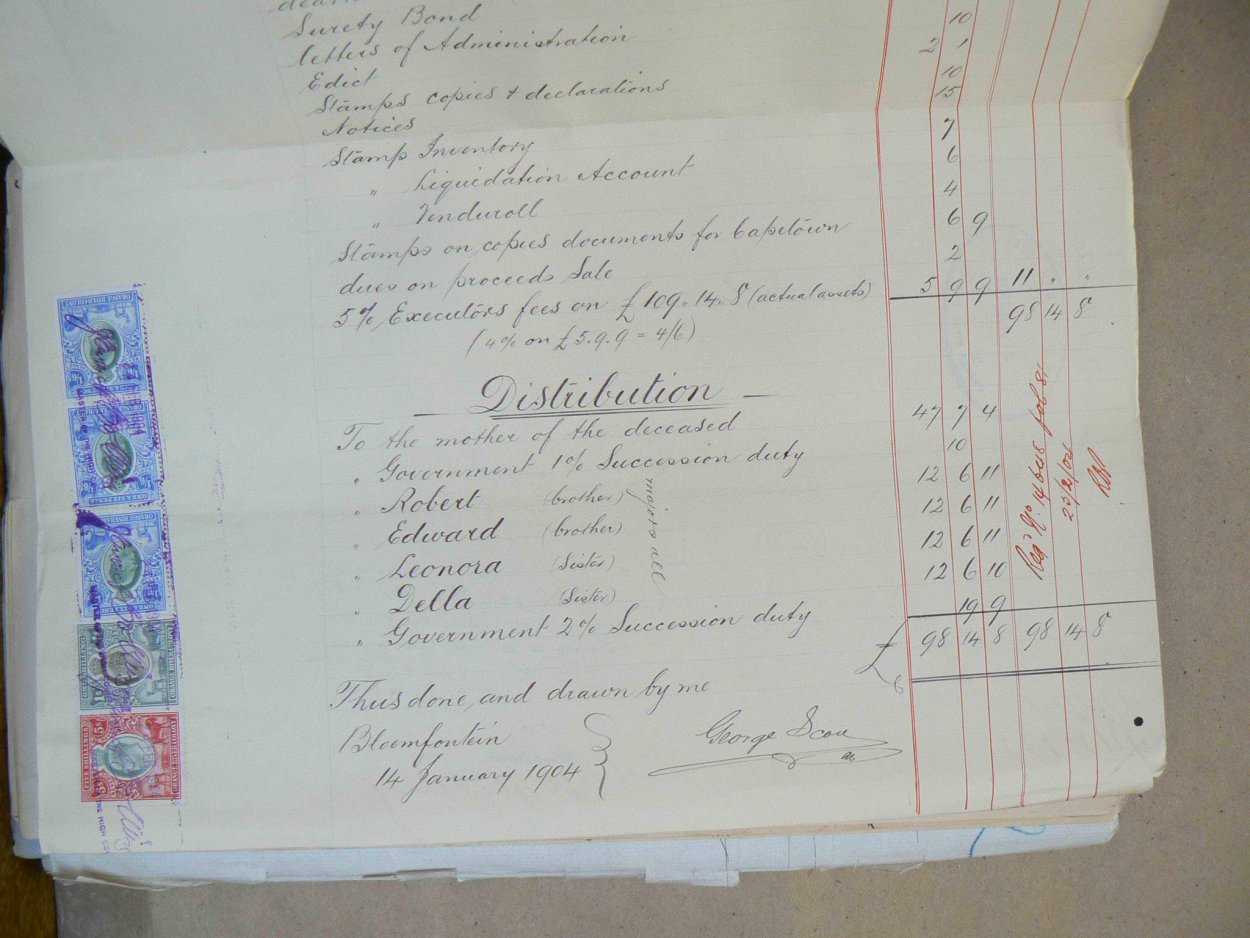 Surety Bond 10
Letters of Administration 2 1
Edict 10
Stamps copies & declarations 15
Notices 7
Stamp Inventory 6
" Liquidation Account 4
" Venduroll 6 9
Stamps on copies documents for Capetown 2
dues on proceeds Sale
5% Executors fees on £109.14.8 (actual assets) 5 9 9 11 " "
(4% on £5.9.9 = 4/6) 98 14 8
— Distribution —
To the mother of the deceased 47 7 4
" Government 1% Succession duty 10
" Robert (brother) 12 6 11
" Edward (brother) 12 6 11
" Leonora (Sister) 12 6 11
" Della (Sister) 12 6 10
" Government 2% Succession duty 19 9
£ 98 14 8 98 14 8
majors all
fol 81
Thus done, and drawn by me
Bloemfontein
14 January 1904
George
ORANGE RIVER COLONY
ONE & SIX PENCE